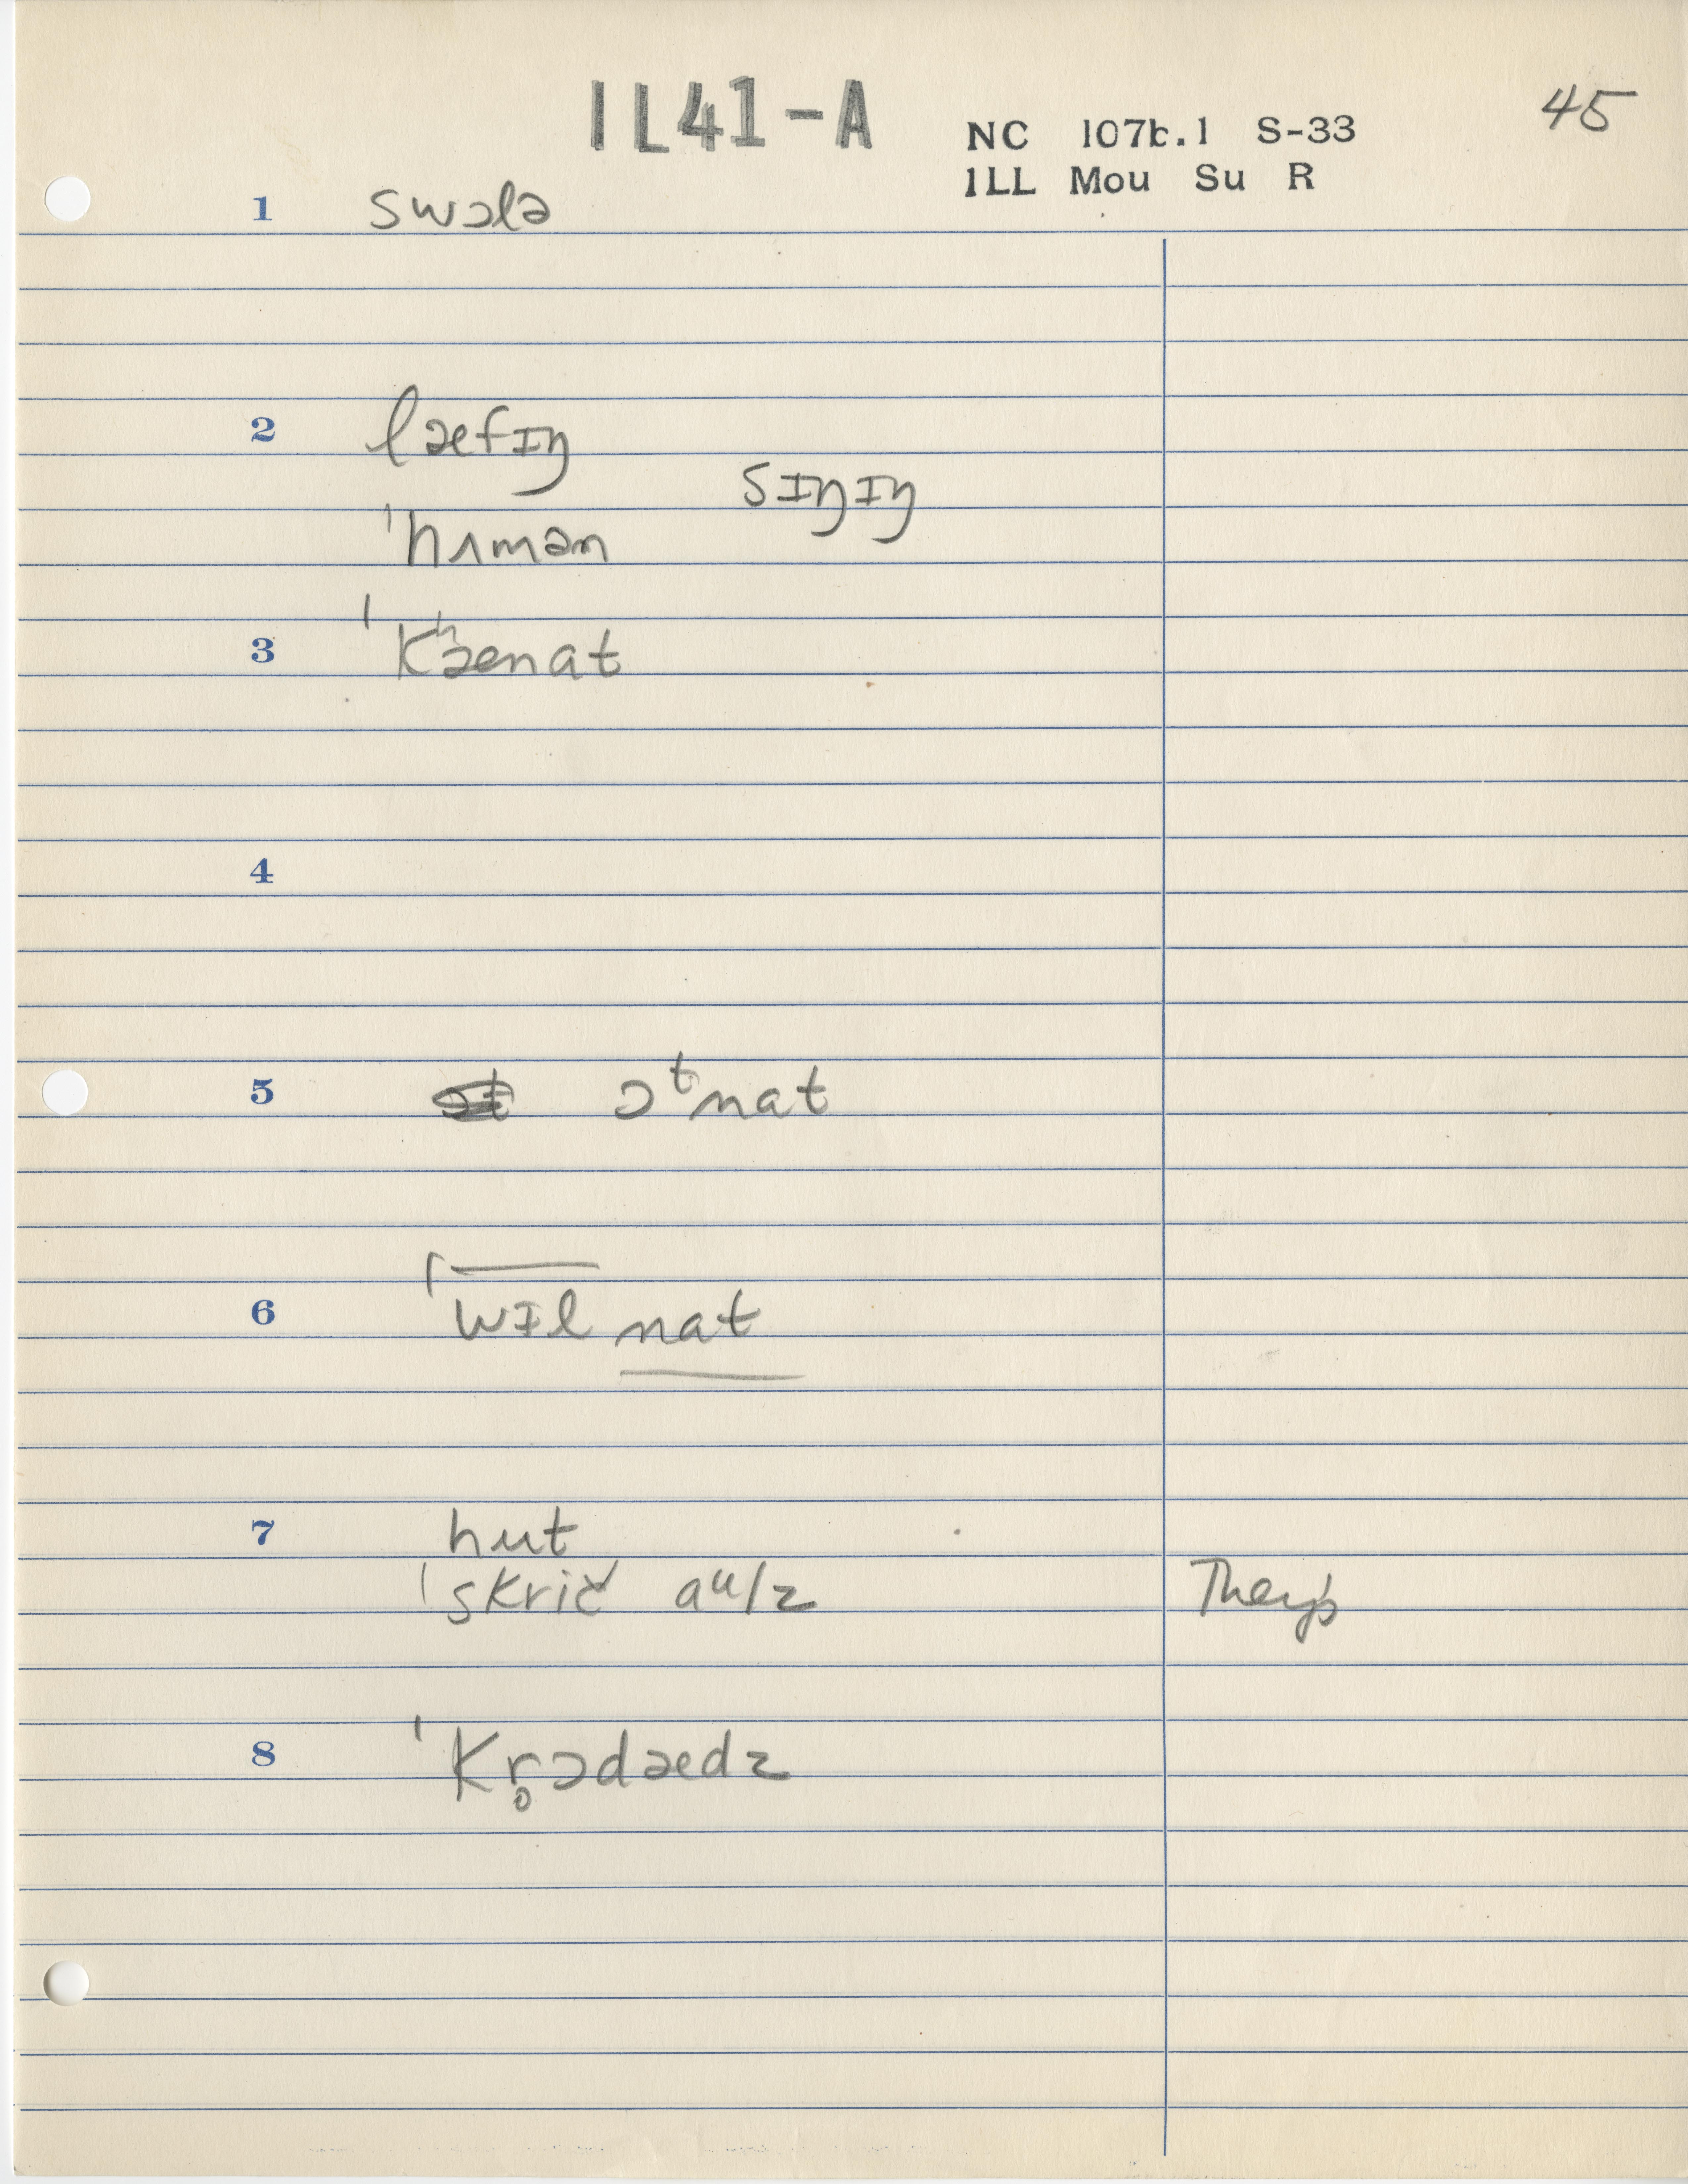 1L41-A
NC 107b.1 S-33
1LL Mou Su R
45
1 swɔlə
2 læfɪŋ
sɪŋɪŋ
ˈhʌmən
3 ˈkʰænat
4
5 ɔᵗnat
6 ˈwɪl nat
7 hut
ˈskrič aᵘlz
They's
8 ˈkr̥ɔdædz